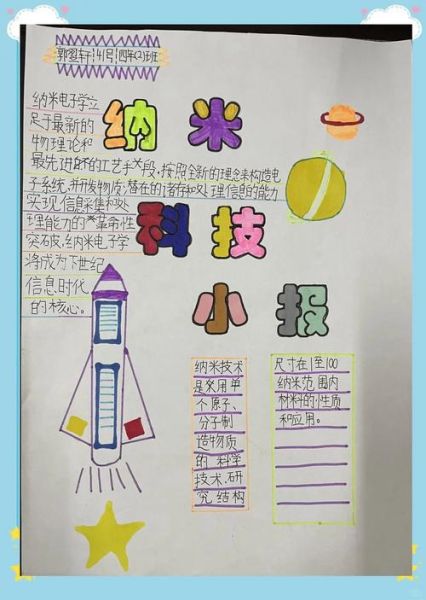 郭图轩 41号 四年(2)班
纳米电子学立
足于最新的
物理论和
最先进的工艺手段,按照全新的理念来构造电
子系统,并开发物质潜在的储存和处理信息的能力
实现信息采集和处
理能力的革命性
突破,纳米电子学
将成为下世纪
信息时代
的核心。
纳米
科技
小报
纳米技术
是采用单
个原子、
分子制
造物质
的科学
技术,研
究结构
尺寸在1至100
纳米范围内
材料的性质
和应用。